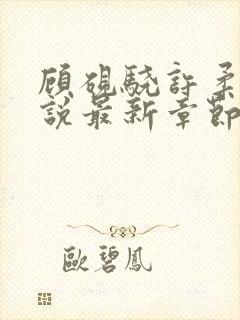 顾砚驍許柔
說最新章節
歐碧鳳